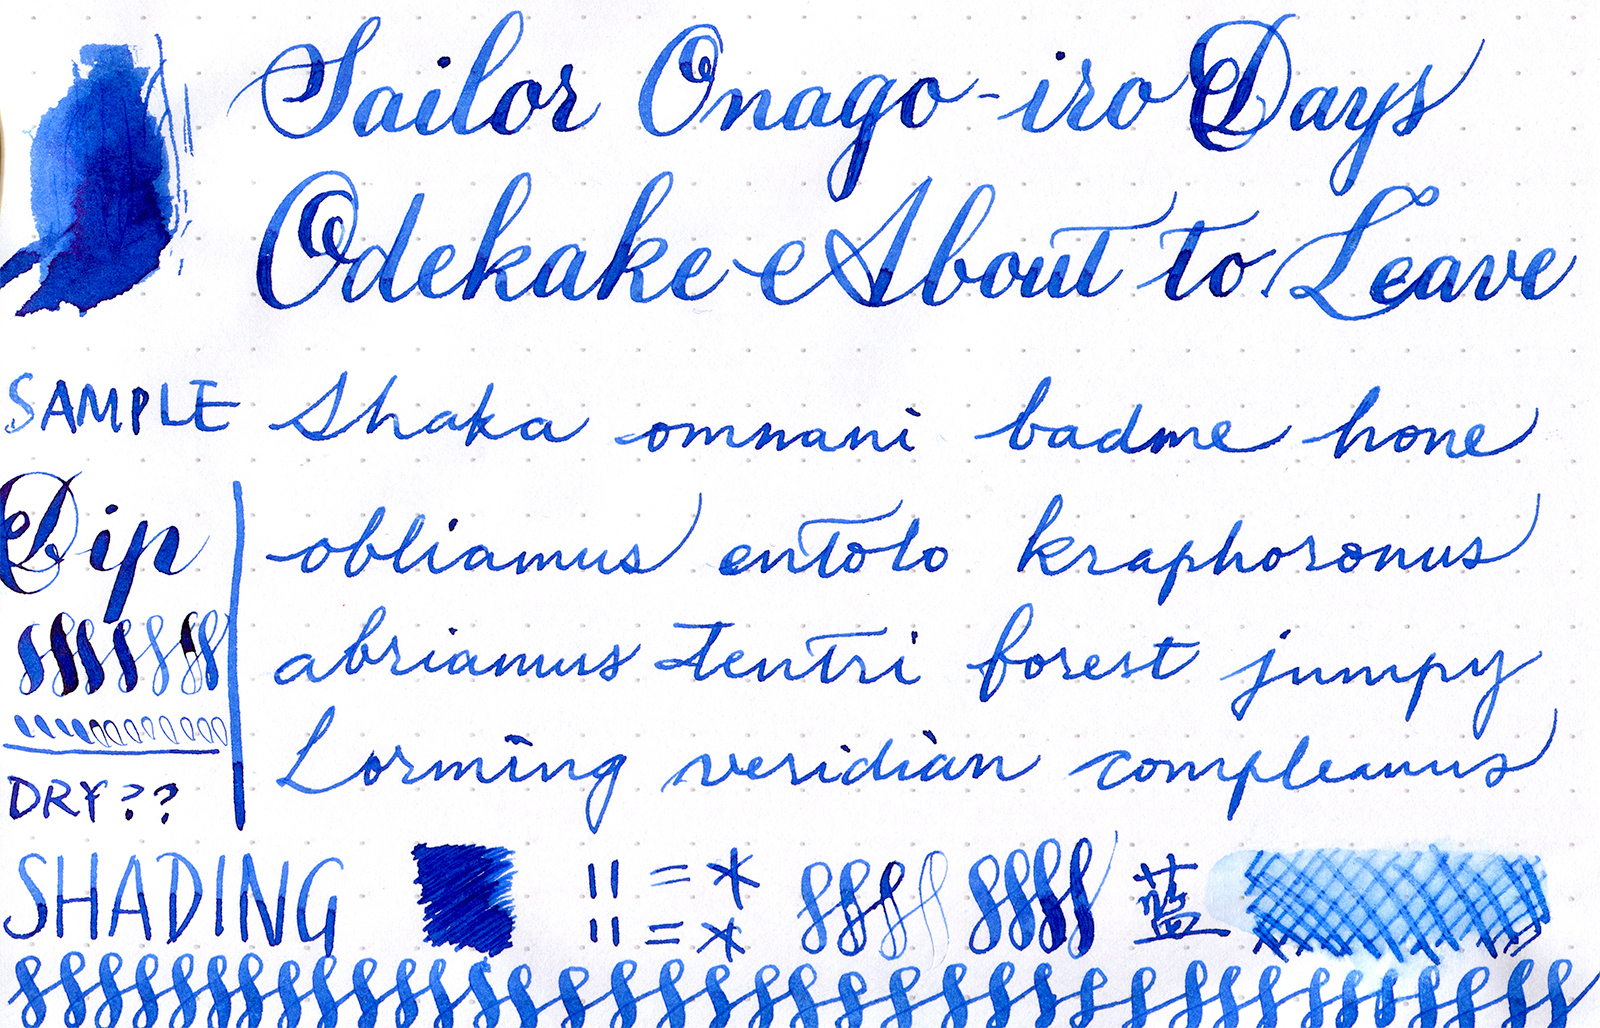 Sailor Onago-iro Days
Odekake - About to Leave
SAMPLE
Shaka omnani badme hone
Dip
obliamus entolo kraphoronus
abriamus tentri forest jumpy
DRY??
Lorming veridian compleamus
SHADING
蓝